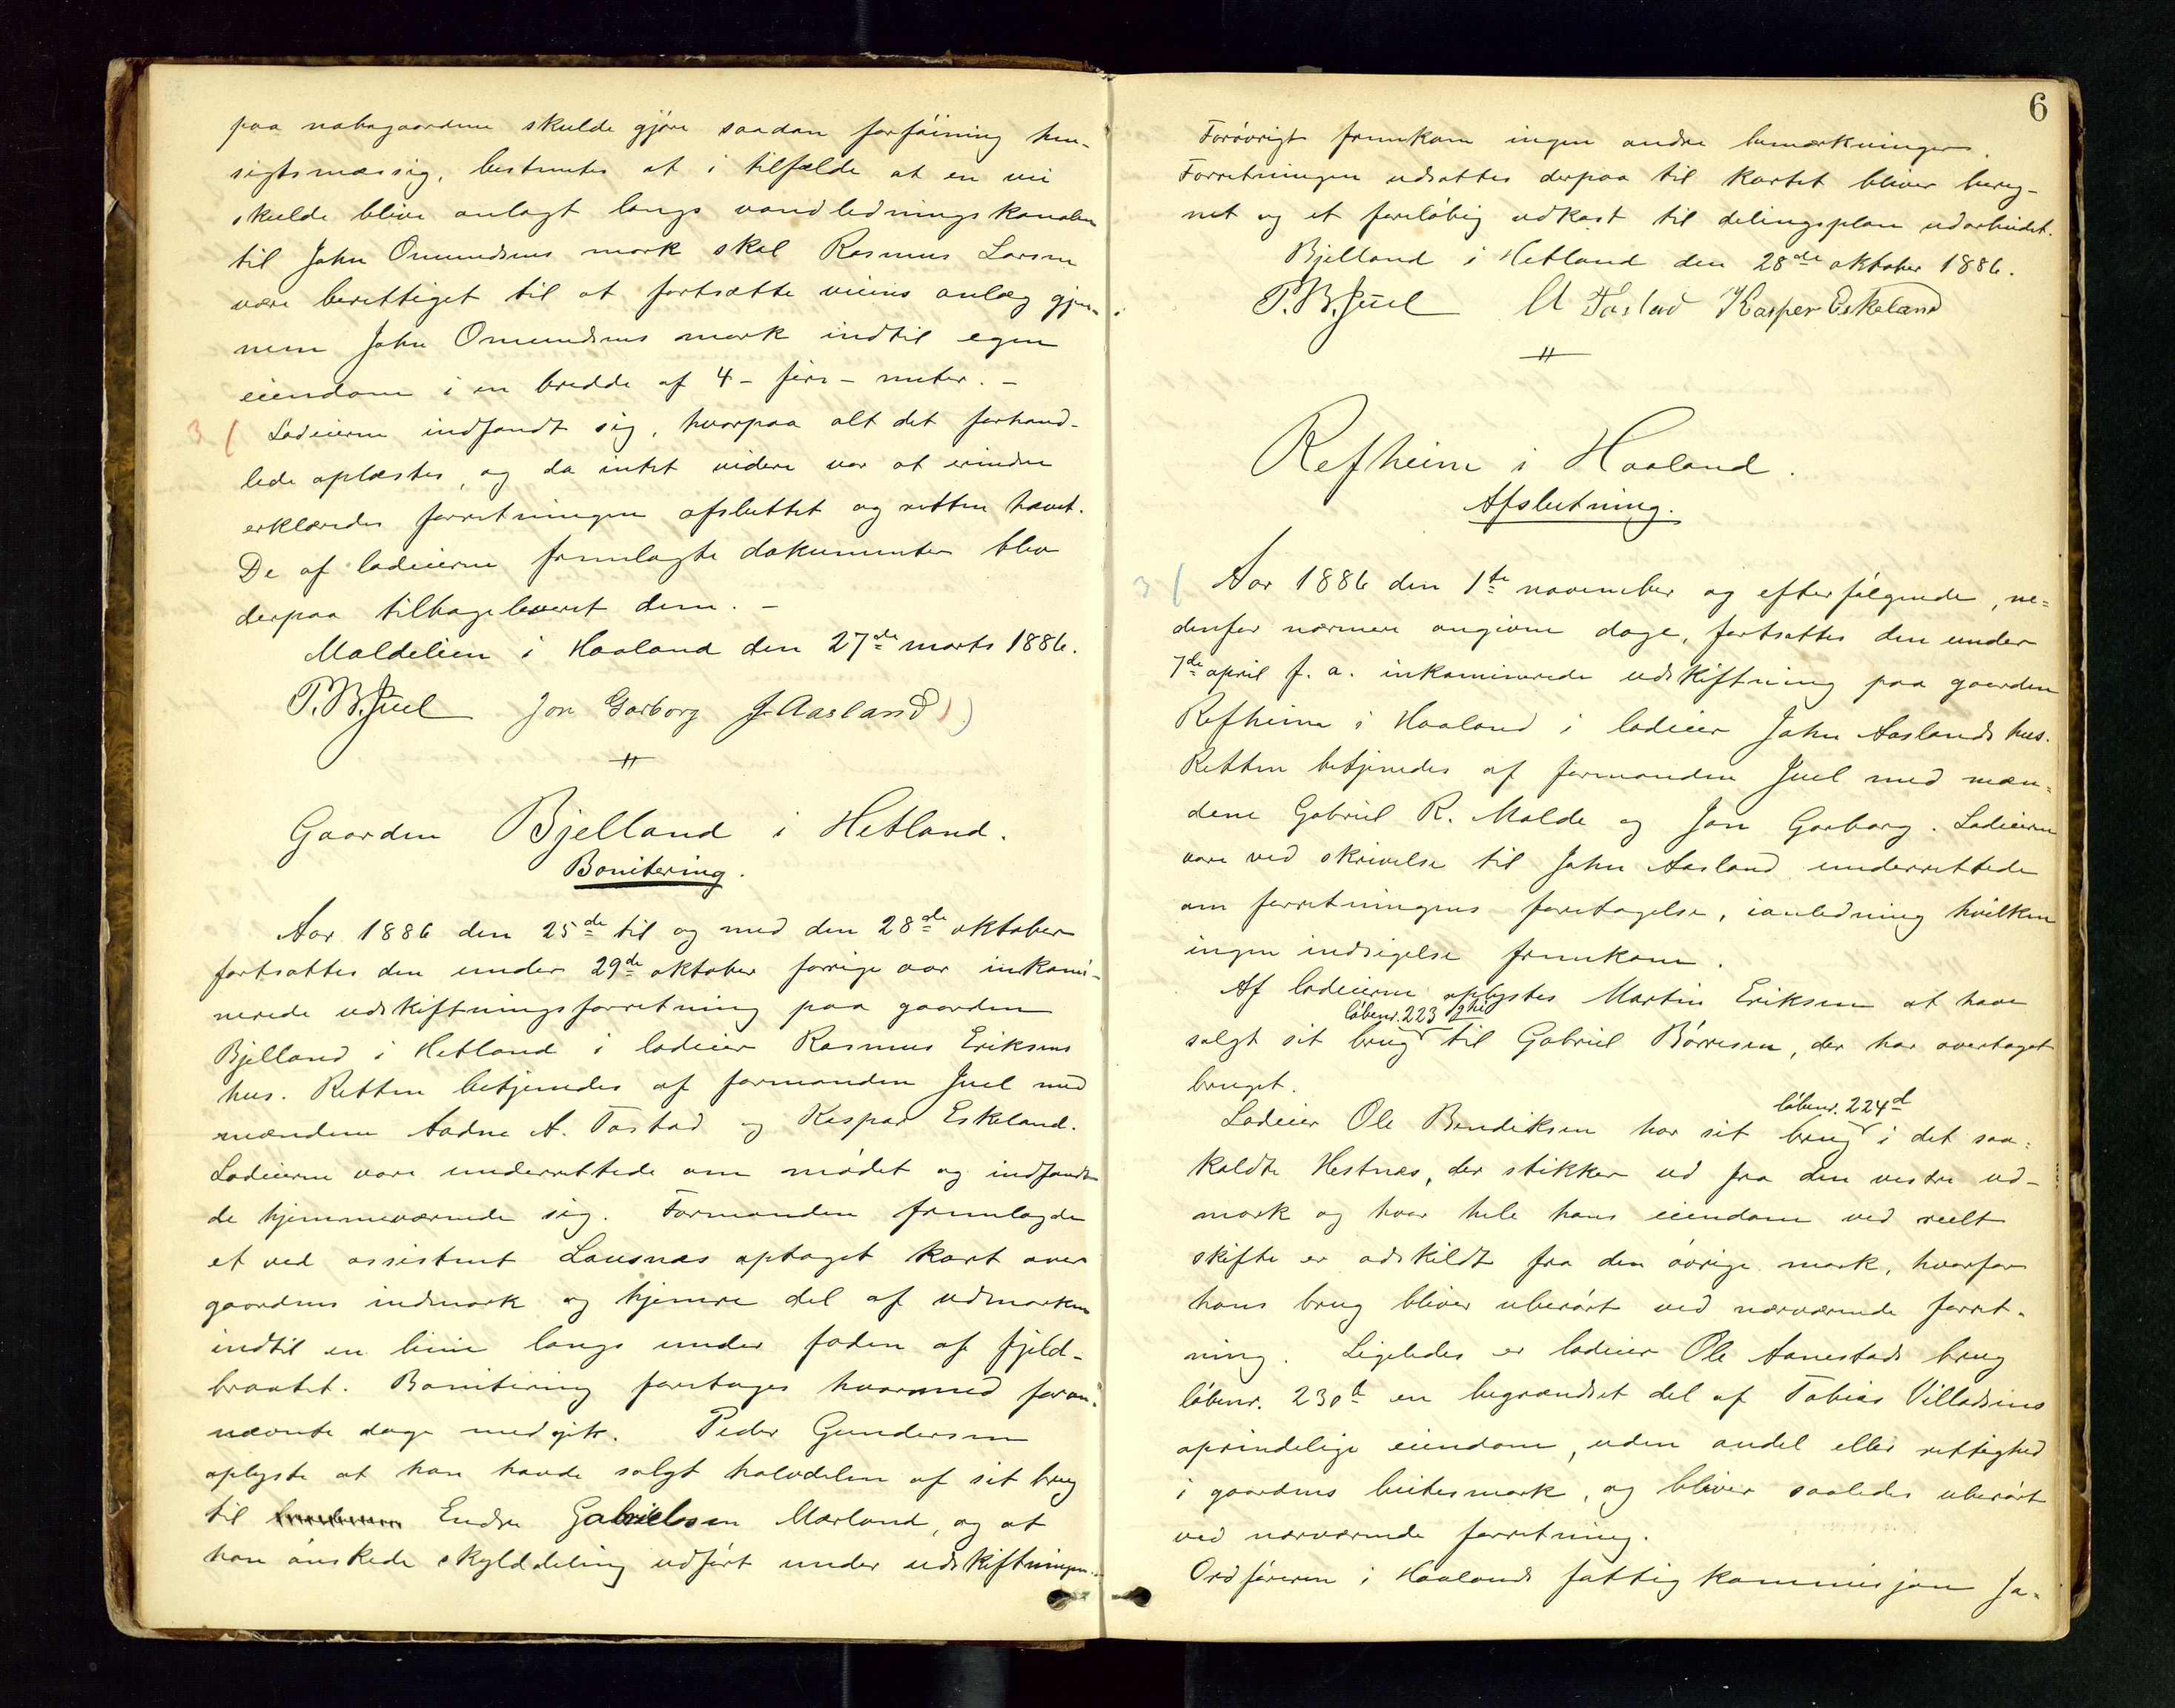 paa nabogaardene skulde gjøre saadan forføining hen-
sigtsmæssig, bestemtes at i tilfælde at en vei
skulde blive anlagt langs vandledningskanalen
til John Omundsens mark skal Rasmus Larsen
være berettiget til at fortsætte veiens anlæg gjen-
nem John Omundsens mark indtil egen
eiendom i en bredde af 4 - fire - meter. -
3 ( Lodeierne indfandt sig, hvorpaa alt det forhand-
lede oplæstes, og da intet videre var at erindre
erklæredes forretningen afsluttet og retten hævet.
De af lodeierne fremlagte dokumenter blev
derpaa tilbageleveret dem. -
Maldelien i Haaland den 27de marts 1886.
P.B.Juel Jon Garborg J. Aasland )
Gaarden Bjelland i Hetland.
Bonitering.
Aar 1886 den 25de til og med den 28de oktober
fortsattes den under 29de oktober forrige aar inkami-
nerede udskiftningsforretning paa gaarden
Bjelland i Hetland i lodeier Rasmus Eriksens
hus. Retten betjenedes af formanden Juel med
mændene Aadne A. Tastad og Kaspar Eskeland.
Lodeierne vare underrettede om mødet og indfandt
de hjemmeværende sig. Formanden fremlagde
et ved assistent Lausnes optaget kart over
gaardens indmark og hjemre del af udmarken
indtil en linie langs under foden af fjeld-
braatet. Bonitering foretoges hvormed foran-
nævnte dage medgik. Peder Gundersen
oplyste at han havde solgt halvdelen af sit brug
til Endre Gabrielsen Marland, og at
han ønskede skylddeling udført under udskiftningen.
6
Forøvrigt fremkom ingen andre bemærkninger.
Forretningen udsattes derpaa til kartet bliver bereg-
net og et foreløbig udkast til delingsplan udarbeidet.
Bjelland i Hetland den 28de oktober 1886.
P.B.Juel A Tastad Kasper Eskeland
Refheim i Haaland.
Afslutning.
3 ( Aar 1886 den 1te november og efterfølgende, ne-
denfor nærmere angivne dage, fortsattes den under
7de april f. a. inkaminerede udskiftning paa gaarden
Refheim i Haaland i lodeier John Aaslands hus.
Retten betjenedes af formanden Juel med mæn-
dene Gabriel R. Malde og Jon Garborg. Lodeierne
vare ved skrivelse til John Aasland underrettede
om forretningens foretagelse, ianledning hvilken
ingen indsigelse fremkom.
Af lodeierne oplystes Martin Eriksen at have
løbenr. 223
solgt sit brug til Gabriel Børresen, der har overtaget
bruget.
løbenr. 224d
Lodeier Ole Bendiksen har sit brug i det saa-
kaldte Hestnes, der stikker ud fra den vestre ud-
mark og hvor hele hans eiendom ved reelt
skifte er adskildt fra den øvrige mark, hvorfor
hans brug bliver uberørt ved nærværende forret-
ning. Ligeledes er lodeier Ole Aanestads brug
løbenr. 230b en begrændset del af Tobias Villadsens
oprindelige eiendom, uden andel eller rettighed
i gaardens beitesmark, og bliver saaledes uberørt
ved nærværende forretning.
Ordføreren i Haalands fattigkommisjon Ja-